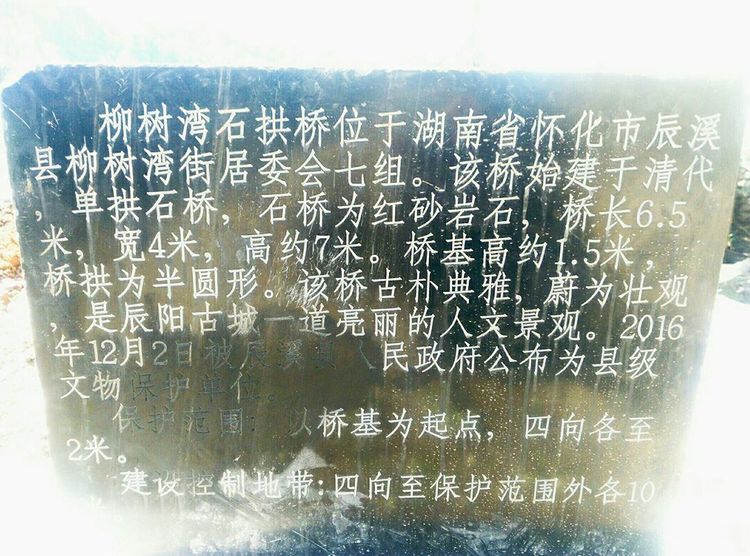 柳树湾石拱桥位于湖南省怀化市辰溪
县柳树湾街居委会七组。该桥始建于清代
，单拱石桥，石桥为红砂岩石，桥长6.5
米，宽4米，高约7米。桥基高约1.5米，
桥拱为半圆形。该桥古朴典雅，蔚为壮观
，是辰阳古城一道亮丽的人文景观。2016
年12月2日被辰溪县人民政府公布为县级
文物保护单位。
保护范围：以桥基为起点，四向各至
2米。
建设控制地带：四向至保护范围外各10